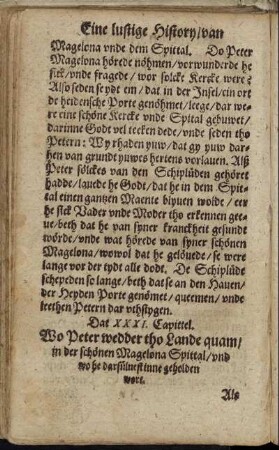 Eine lustige History/ van
Magelona vnde dem Spittal. Do Peter
Magelona hörede nöhmen/ vorwunderde he
sick/ vnde fragede/ wor solcke Kercke were?
Also seden se ydt em/ dat in der Insel/ ein ort
de heidensche Porte genöhmet/ leege/ dar we-
re eine schöne Kercke vnde Spital gebuwet/
darinne Godt vel teeken dede/ vnde seden tho
Petern: Wy rhaden yuw/ dat gy yuw dar-
hen van grundt yuwes hertens vorlauen. Alß
Peter sölckes van den Schiplüden gehöret
hadde/ lauede he Godt/ dat he in dem Spit-
tal einen gantzen Maente blyuen wolde/ eer
he sick Vader vnde Moder tho erkennen ge-
ue/ beth dat he van syner kranckheit gesundt
wörde/ vnde wat hörede van syner schönen
Magelona/ wowol dat he gelöuede/ se were
lange vor der tydt alle dodt. De Schiplüde
schepeden so lange/ beth dat se an den Hauen/
der Heyden Porte genömet/ queemen/ vnde
leethen Petern dar vthstygen.
Dat XXXI. Capittel.
Wo Peter wedder tho Lande quam/
in der schönen Magelona Spittal/ vnd
wo he darsüluest inne geholden
wort.
Als